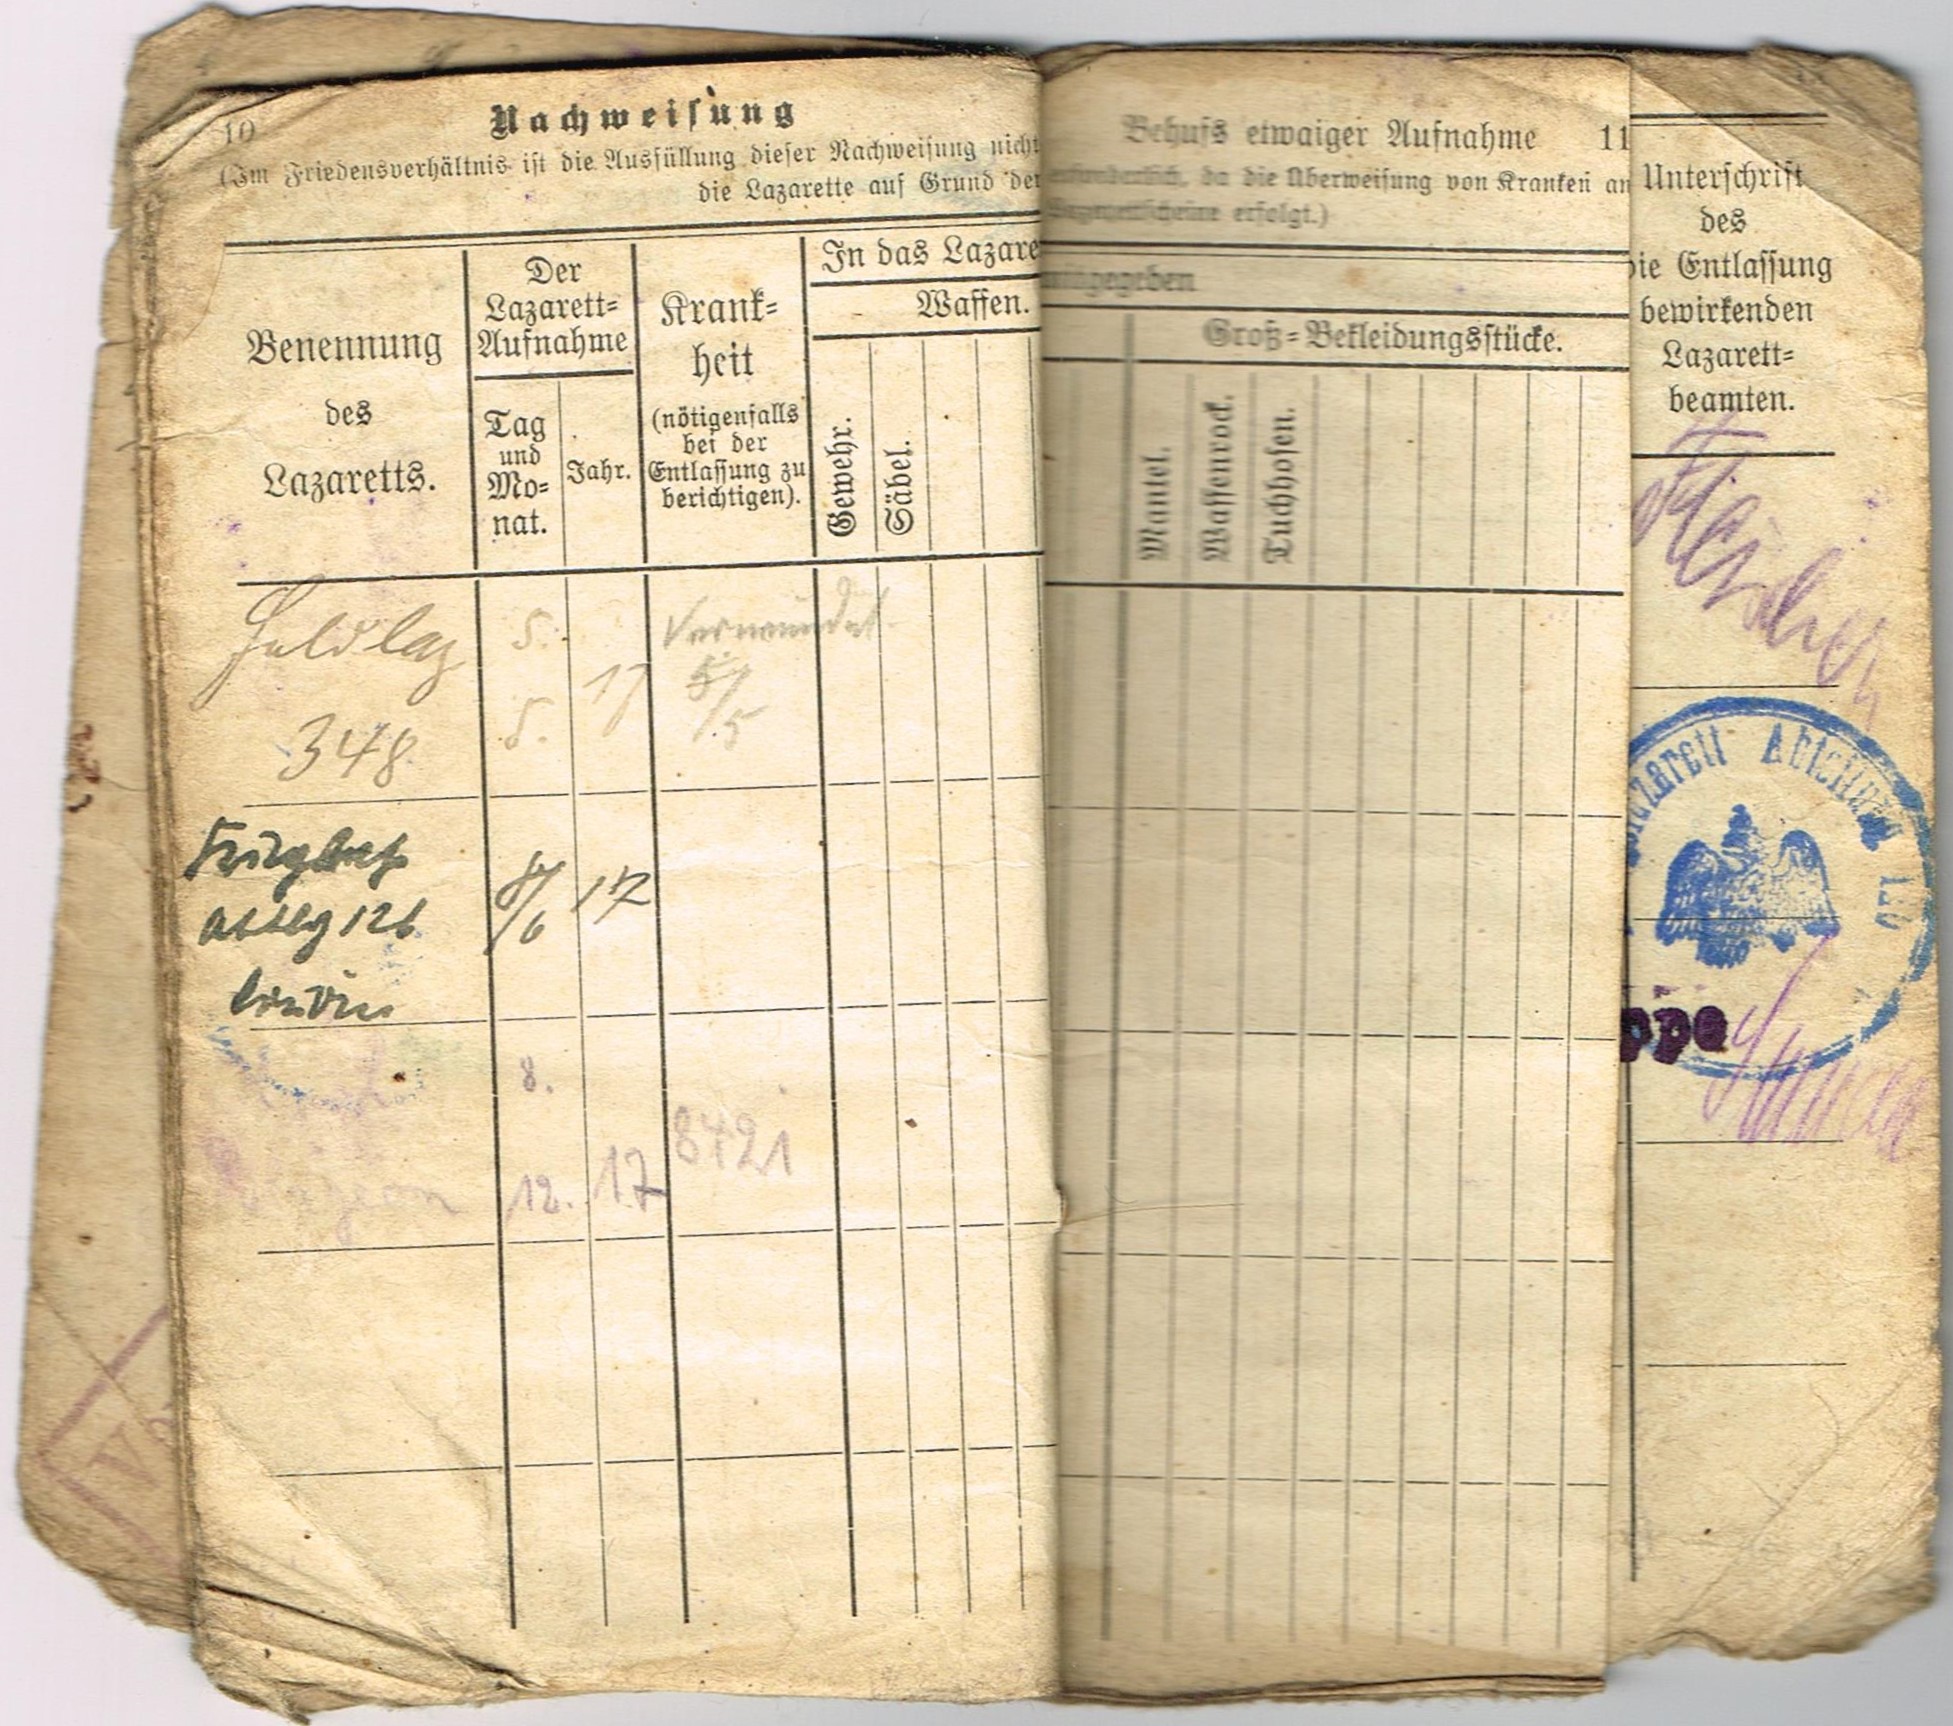 10
Nachweisung
(Im Friedensverhältnis ist die Ausfüllung dieser Nachweisung nicht
die Lazarette auf Grund der
Benennung
des
Lazaretts.
Der
Lazarett=
Aufnahme
Tag
und
Mo=
nat.
Jahr.
Krank=
heit
(nötigenfalls
bei der
Entlassung zu
berichtigen).
In das Lazare
Waffen.
Gewehr.
Säbel.
Feldlaz
348
5.
5.
17
Verwundet
5/5
Abtlg 126
8/6
17
8.
12.
17
8421
Behufs etwaiger Aufnahme
11
erforderlich, da die Überweisung von Kranken an
erfolgt.)
mitgegeben
Groß=Bekleidungsstücke.
Mantel.
Waffenrock.
Tuchhosen.
Unterschrift
des
die Entlassung
bewirkenden
Lazarett=
beamten.
azarett Abteilung
ppe